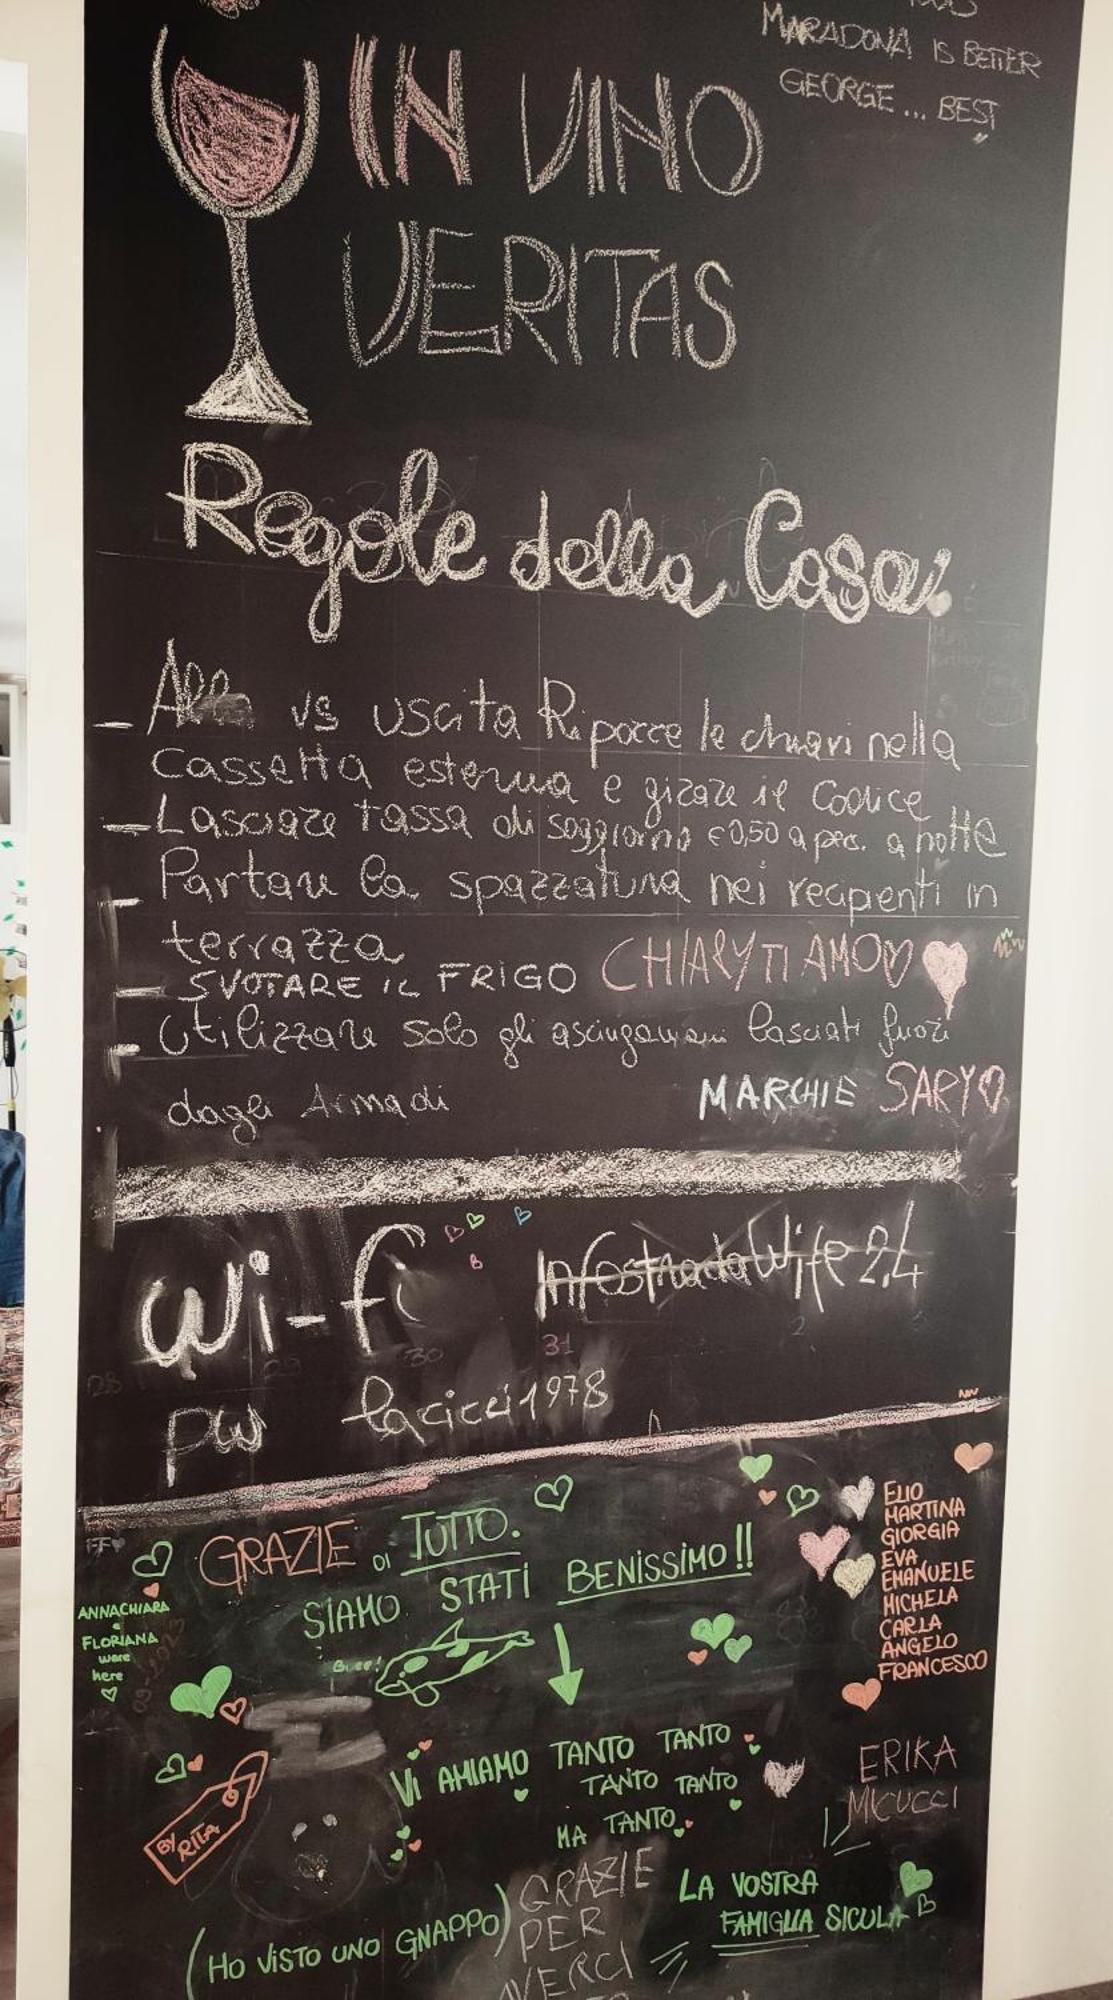 MARADONA IS BETTER
GEORGE ... BEST
IN VINO
VERITAS
Regole della Casa
- Alla vs uscita Riporre le chiavi nella
Cassetta esterna e girare il Codice
- Lasciare tassa di soggiorno € 0,50 a pers. a notte
- Portare la spazzatura nei recipienti in
terrazza
CHIARY TI AMO
- SVOTARE IL FRIGO
- Utilizzare solo gli asciugamani lasciati fuori
dagli Armadi
MARCHIE SARY
Wi-fi InfostradaWife 2,4
28 29 30 31 2
pw lacicci1978
GRAZIE DI TUTTO.
SIAMO STATI BENISSIMO!!
ELIO
MARTINA
GIORGIA
EVA
EMANUELE
MICHELA
CARLA
ANGELO
FRANCESCO
ANNACHIARA
e
FLORIANA
were
here
VI AMIAMO TANTO TANTO
TANTO TANTO
MA TANTO
ERIKA
MICUCCI
BY RITA
LA VOSTRA
FAMIGLIA SICULA
(HO VISTO UNO GNAPPO)
GRAZIE
PER
AVERCI